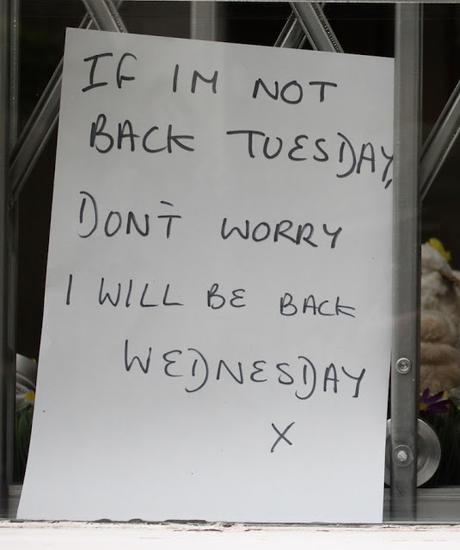 IF IM NOT
BACK TUESDAY,
DON'T WORRY
I WILL BE BACK
WEDNESDAY
X